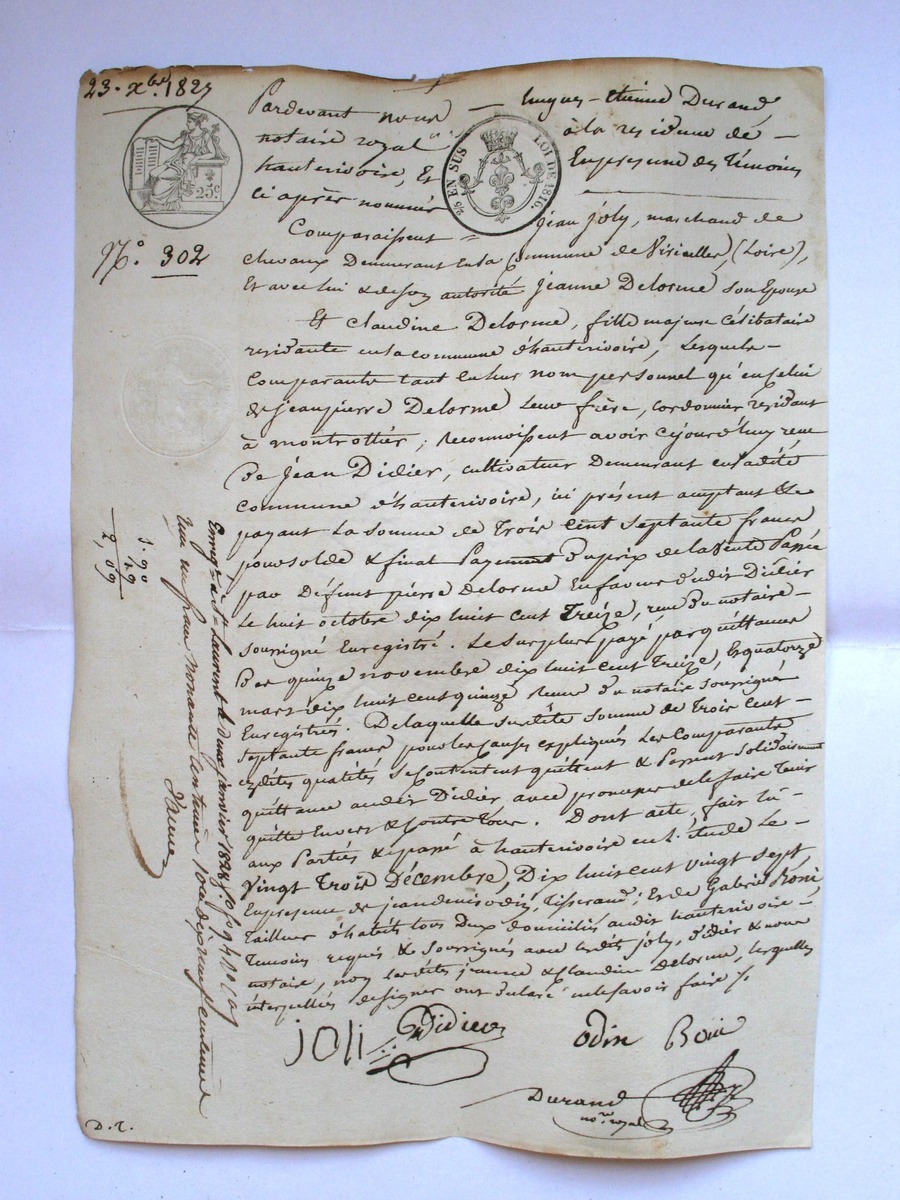 23. Xbre 1827
25c
25 EN SUS LOI DE 1816.
N.o 302
Pardevant nous — hugues - Etienne Durand
notaire royal à la residence de —
hauterivoire, Et En presence des Temoins
ci après nommés
Comparaissent = Jean Joly, marchand de
chevaux Demeurant en la Commune de Viricelles, (Loire),
Et avec lui & de son autorité Jeanne Delorme son Epouse
Et Claudine Delorme, fille majeure Célibataire
residante en la commune d'hauterivoire, Lesquels —
Comparants tant en leur nom personnel qu'en celui
de jeanpierre Delorme leur frère, cordonnier résidant
à montrottier, Reconnoissent avoir cejourd'huy reçu
De Jean Didier, cultivateur Demeurant en ladite
Commune d'hauterivoire, ici présent acceptant & le
payant La somme de Trois Cent Septante francs
pour solde & final Payement du prix de la Vente Passée
par Défunt pierre Delorme En faveur dudit Didier
Le huit octobre dix huit cent Treize, reçue du notaire —
soussigné Enregistré. Le surplus payé par quittances
Des quinze novembre dix huit cent Treize, & quatorze
mars dix huit cent quinze Reçues du notaire soussigné
Enregistrés. De laquelle susdite somme de Trois Cent —
Septante francs pour les causes expliquées Les Comparants
esdites qualités se Contentent quittent & Passent solidairement
quittance audit Didier, avec promesse de le faire Tenir
quitte Envers & Contre Tous. Dont acte, fait lu —
aux Parties & passé à hauterivoire en l'étude Le —
Vingt Trois Décembre, Dix huit cent vingt sept
En presence de jean denis odin, Tisserand, Et de Gabriel Roni
Tailleur d'habits tous Deux domiciliés audit hauterivoire —
Temoins requis & soussignés avec lesdit joly, didier & nous
notaire, non lesdites jeanne & Claudine Delorme, lesquelles
interpellées de signer ont declaré ne le savoir faire
JOLi Didier odin Roni
Durand
no.re royal
D. T.
Enreg. à St Laurent le deux janvier 1828
un franc nonante centimes dixneuf centimes
1,90
19
2,09